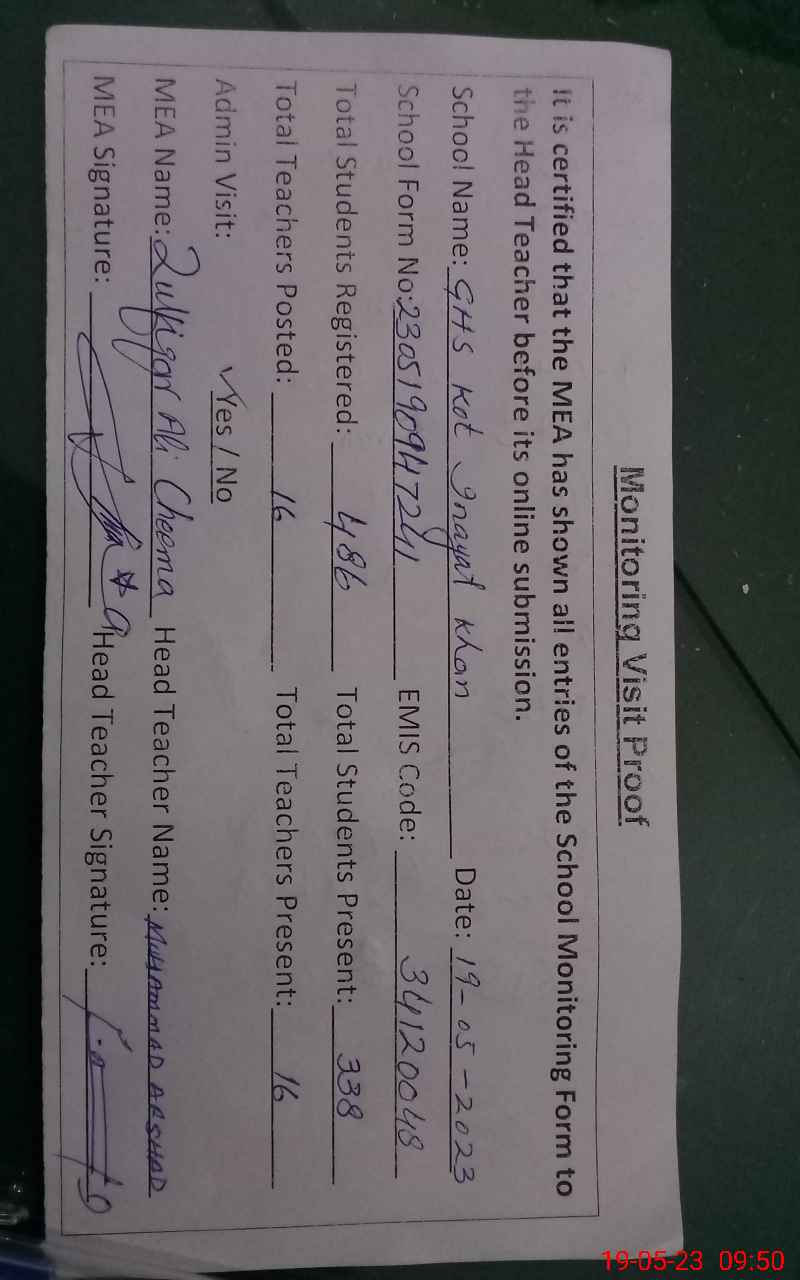 Monitoring Visit Proof
It is certified that the MEA has shown all entries of the School Monitoring Form to
the Head Teacher before its online submission.
School Name: GHS Kot Inayat Khan Date: 19-05-2023
School Form No: 230519094724 EMIS Code: 34120048
Total Students Registered: 486 Total Students Present: 338
Total Teachers Posted: 16 Total Teachers Present: 16
Admin Visit: ✓Yes / No
MEA Name: Zulfiqar Ali Cheema Head Teacher Name: MUHAMMAD ARSHAD
MEA Signature: Head Teacher Signature:
19-05-23 09:50